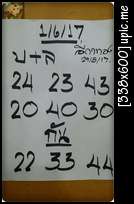 1/6/17
บ+ล
24 23 43
20 40 30
กัน
22 33 44
[338x600] upic.me